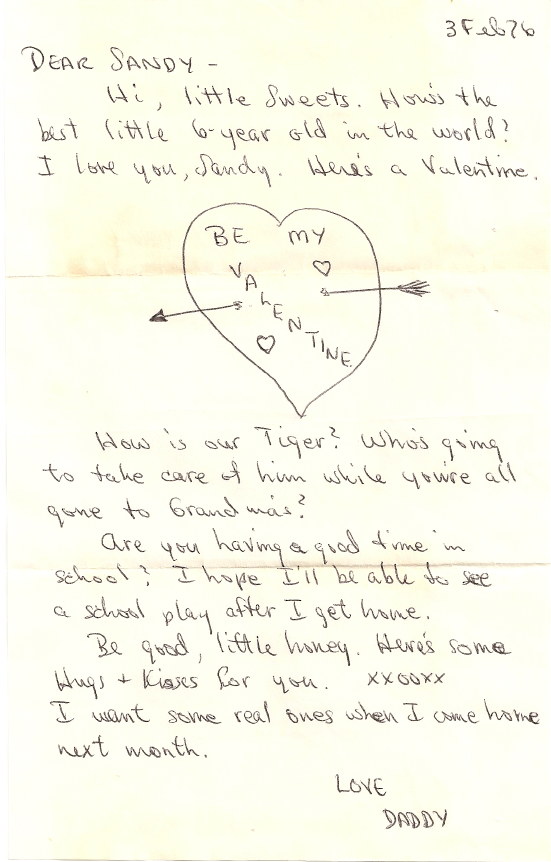 3 Feb 76
DEAR SANDY -
Hi, little Sweets. How's the
best little 6-year old in the world?
I love you, Sandy. Here's a Valentine.
BE MY
VALENTINE
How is our Tiger? Who's going
to take care of him while you're all
gone to Grandma's?
Are you having a good time in
school? I hope I'll be able to see
a school play after I get home.
Be good, little honey. Here's some
Hugs + Kisses for you. xxooxx
I want some real ones when I come home
next month.
LOVE
DADDY